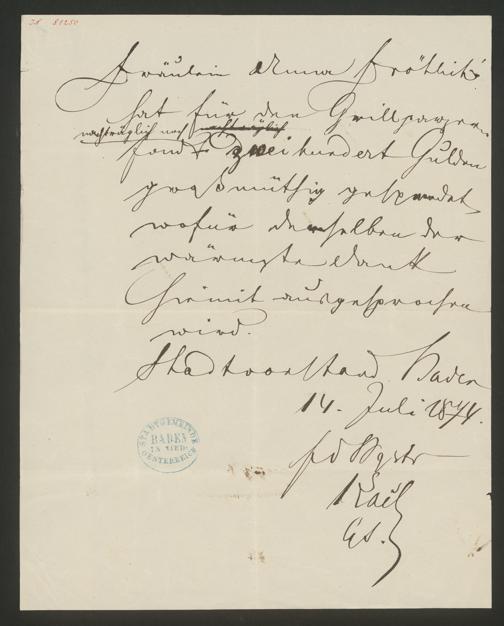 IN 81250
Fräulein Anna Fröhlich
hat für den Grillparzer
nachträglich noch
fond zweihundert Gulden
großmüthig gespendet,
wofür derselben der
wärmste Dank
hiemit ausgesprochen
wird.
Stadtvorstand Baden
14. Juli 1874.
STADTGEMEINDE
BADEN
IN NIED:
OESTERREICH